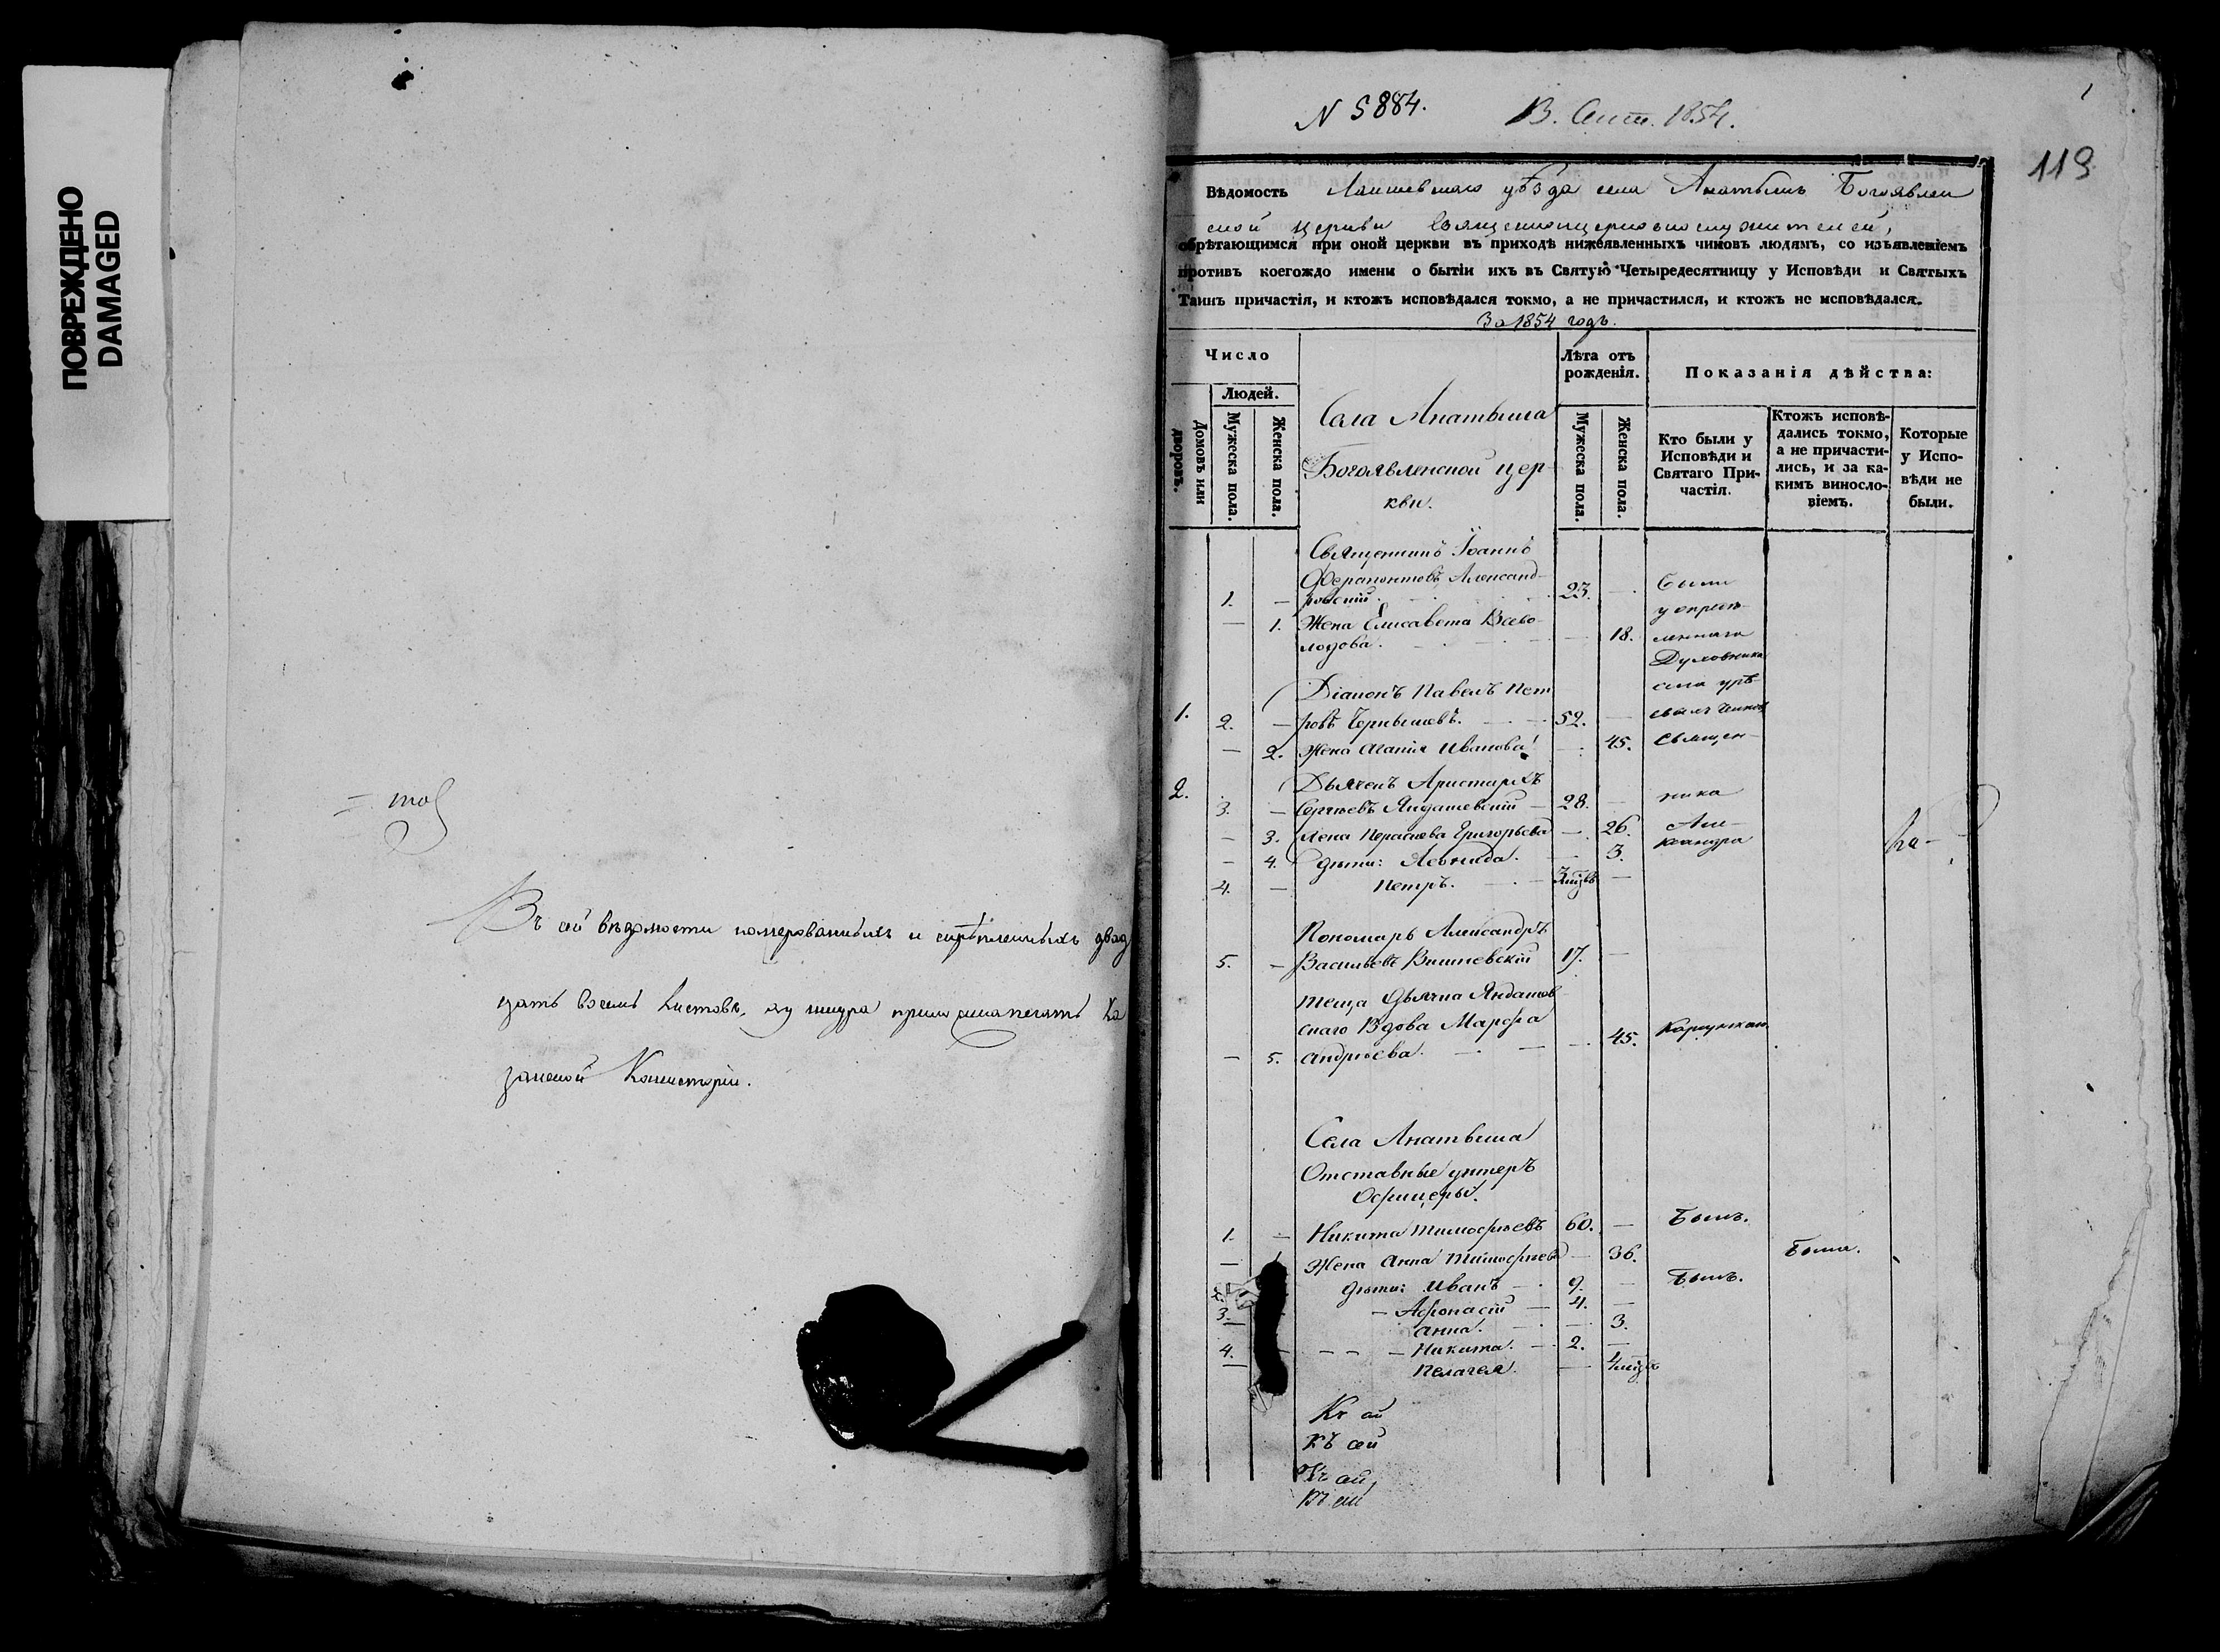 ПОВРЕЖДЕНО
DAMAGED
Въ сей вѣдомости номерованныхъ и скрѣпленныхъ двад
цать восемь листовъ, ку шнура приложена печать Ка
занской Консисторіи.
N 5884.
1854.
1
119
Вѣдомость Лаишевскаго уѣзда села Анатышъ Богоявлен
ской церкви Священноцерковнослужителей,
обрѣтающимся при оной церкви въ приходѣ нижеявленныхъ чиновъ людямъ, со изъявленіемъ
противъ коегождо имени о бытіи ихъ въ Святую Четыредесятницу у Исповѣди и Святыхъ
Таинъ причастія, и ктожъ исповѣдался токмо, а не причастился, и ктожъ не исповѣдался.
За 1854 годъ.
Число
Людей.
Домовъ или дворовъ.
Мужеска пола.
Женска пола.
Села Анатыша
Богоявленской цер-
кви.
Лѣта отъ
рожденія.
Мужеска пола.
Женска пола.
Показанія дѣйства:
Кто были у
Исповѣди и
Святаго При-
частія.
Ктожъ исповѣ-
дались токмо,
а не причасти-
лись, и за ка-
кимъ винсло-
віемъ.
Которые
у Испо-
вѣди не
были.
Священникъ Іоаннъ
Ферапонтовъ Александ-
1. — ровскій. 23. — были
— 1. Жена Елисавета Всево-
лодова. — 18.
Духовника
Діаконъ Павелъ Пет
1. 2. — ровъ Чернышевъ. 52. —
— 2. Жена Агапія Иванова — 45. Священ-
2. Дьячекъ Аристархъ
3. — Сергѣевъ Яндашевскій — 28. — ника
— 3. Жена Параскева Григорьева — 26. Але-
— 4. дѣти: Леонида. — 3. ксандра
4. — Петръ. — 3 мѣцв —
Пономарь Александръ
5. — Васильевъ Вишневскій 17. —
теща дьячка Яндашев
скаго Вдова Марфа
— 5. Андреева. — 45.
Села Анатыша
Отставные унтеръ
Офицеры.
1. — Никита Тимофѣевъ 60. — Былъ.
— Жена Анна Тимофѣева — 36. Была.
2. дѣти: Иванъ — 9. — Былъ.
3. — Афонасій — 4. —
— Анна. — 3.
4. — Никита. — 2. —
— Пелагея. — 4 мѣцв
Къ сей
Къ сей
Къ сей
Къ сей